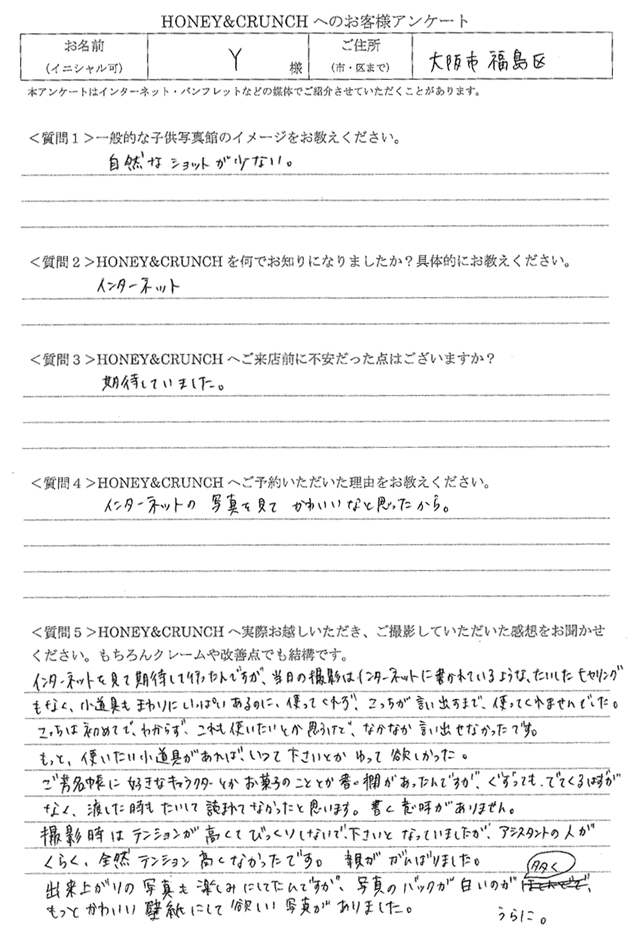 HONEY&CRUNCH へのお客様アンケート
お名前
(イニシャル可)
Y
様
ご住所
(市・区まで)
大阪市 福島区
本アンケートはインターネット・パンフレットなどの媒体でご紹介させていただくことがあります。
＜質問1＞一般的な子供写真館のイメージをお教えください。
自然なショットが少ない。
＜質問2＞HONEY&CRUNCH を何でお知りになりましたか？具体的にお教えください。
インターネット
＜質問3＞HONEY&CRUNCH へご来店前に不安だった点はございますか？
期待していました。
＜質問4＞HONEY&CRUNCH へご予約いただいた理由をお教えください。
インターネットの 写真を見て かわいいなと思ったから。
＜質問5＞HONEY&CRUNCH へ実際お越しいただき、ご撮影していただいた感想をお聞かせ
ください。もちろんクレームや改善点でも結構です。
インターネットを見て期待して行ったんですが、当日の撮影はインターネットに書かれているような、たいしたヒヤリング
もなく、小道具もまわりにいっぱいあるのに、使ってくれず、こっちが言い出すまで、使ってくれませんでした。
こっちは初めてで、わからず、これも使いたいとか思うけど、なかなか言い出せなかったです。
もっと、使いたい小道具があれば、いって下さいとか ゆって 欲しかった。
ご芳名帳に 好きなキャラクターとか お菓子のこととか 書く欄があったんですが、ぐずっても、でてくるはずが
なく、渡した時もたいして 読まれてなかったと思います。書く意味がありません。
撮影時は テンションが 高くて びっくりしないで下さいと なっていましたが、アシスタントの人が
くらく、全然 テンション 高くなかったです。 親が がんばりました。
出来上がりの 写真も 楽しみにしてたんですが、写真のバックが 白いのが 多く、
もっと かわいい 壁紙にして 欲しい 写真がありました。
うらに。